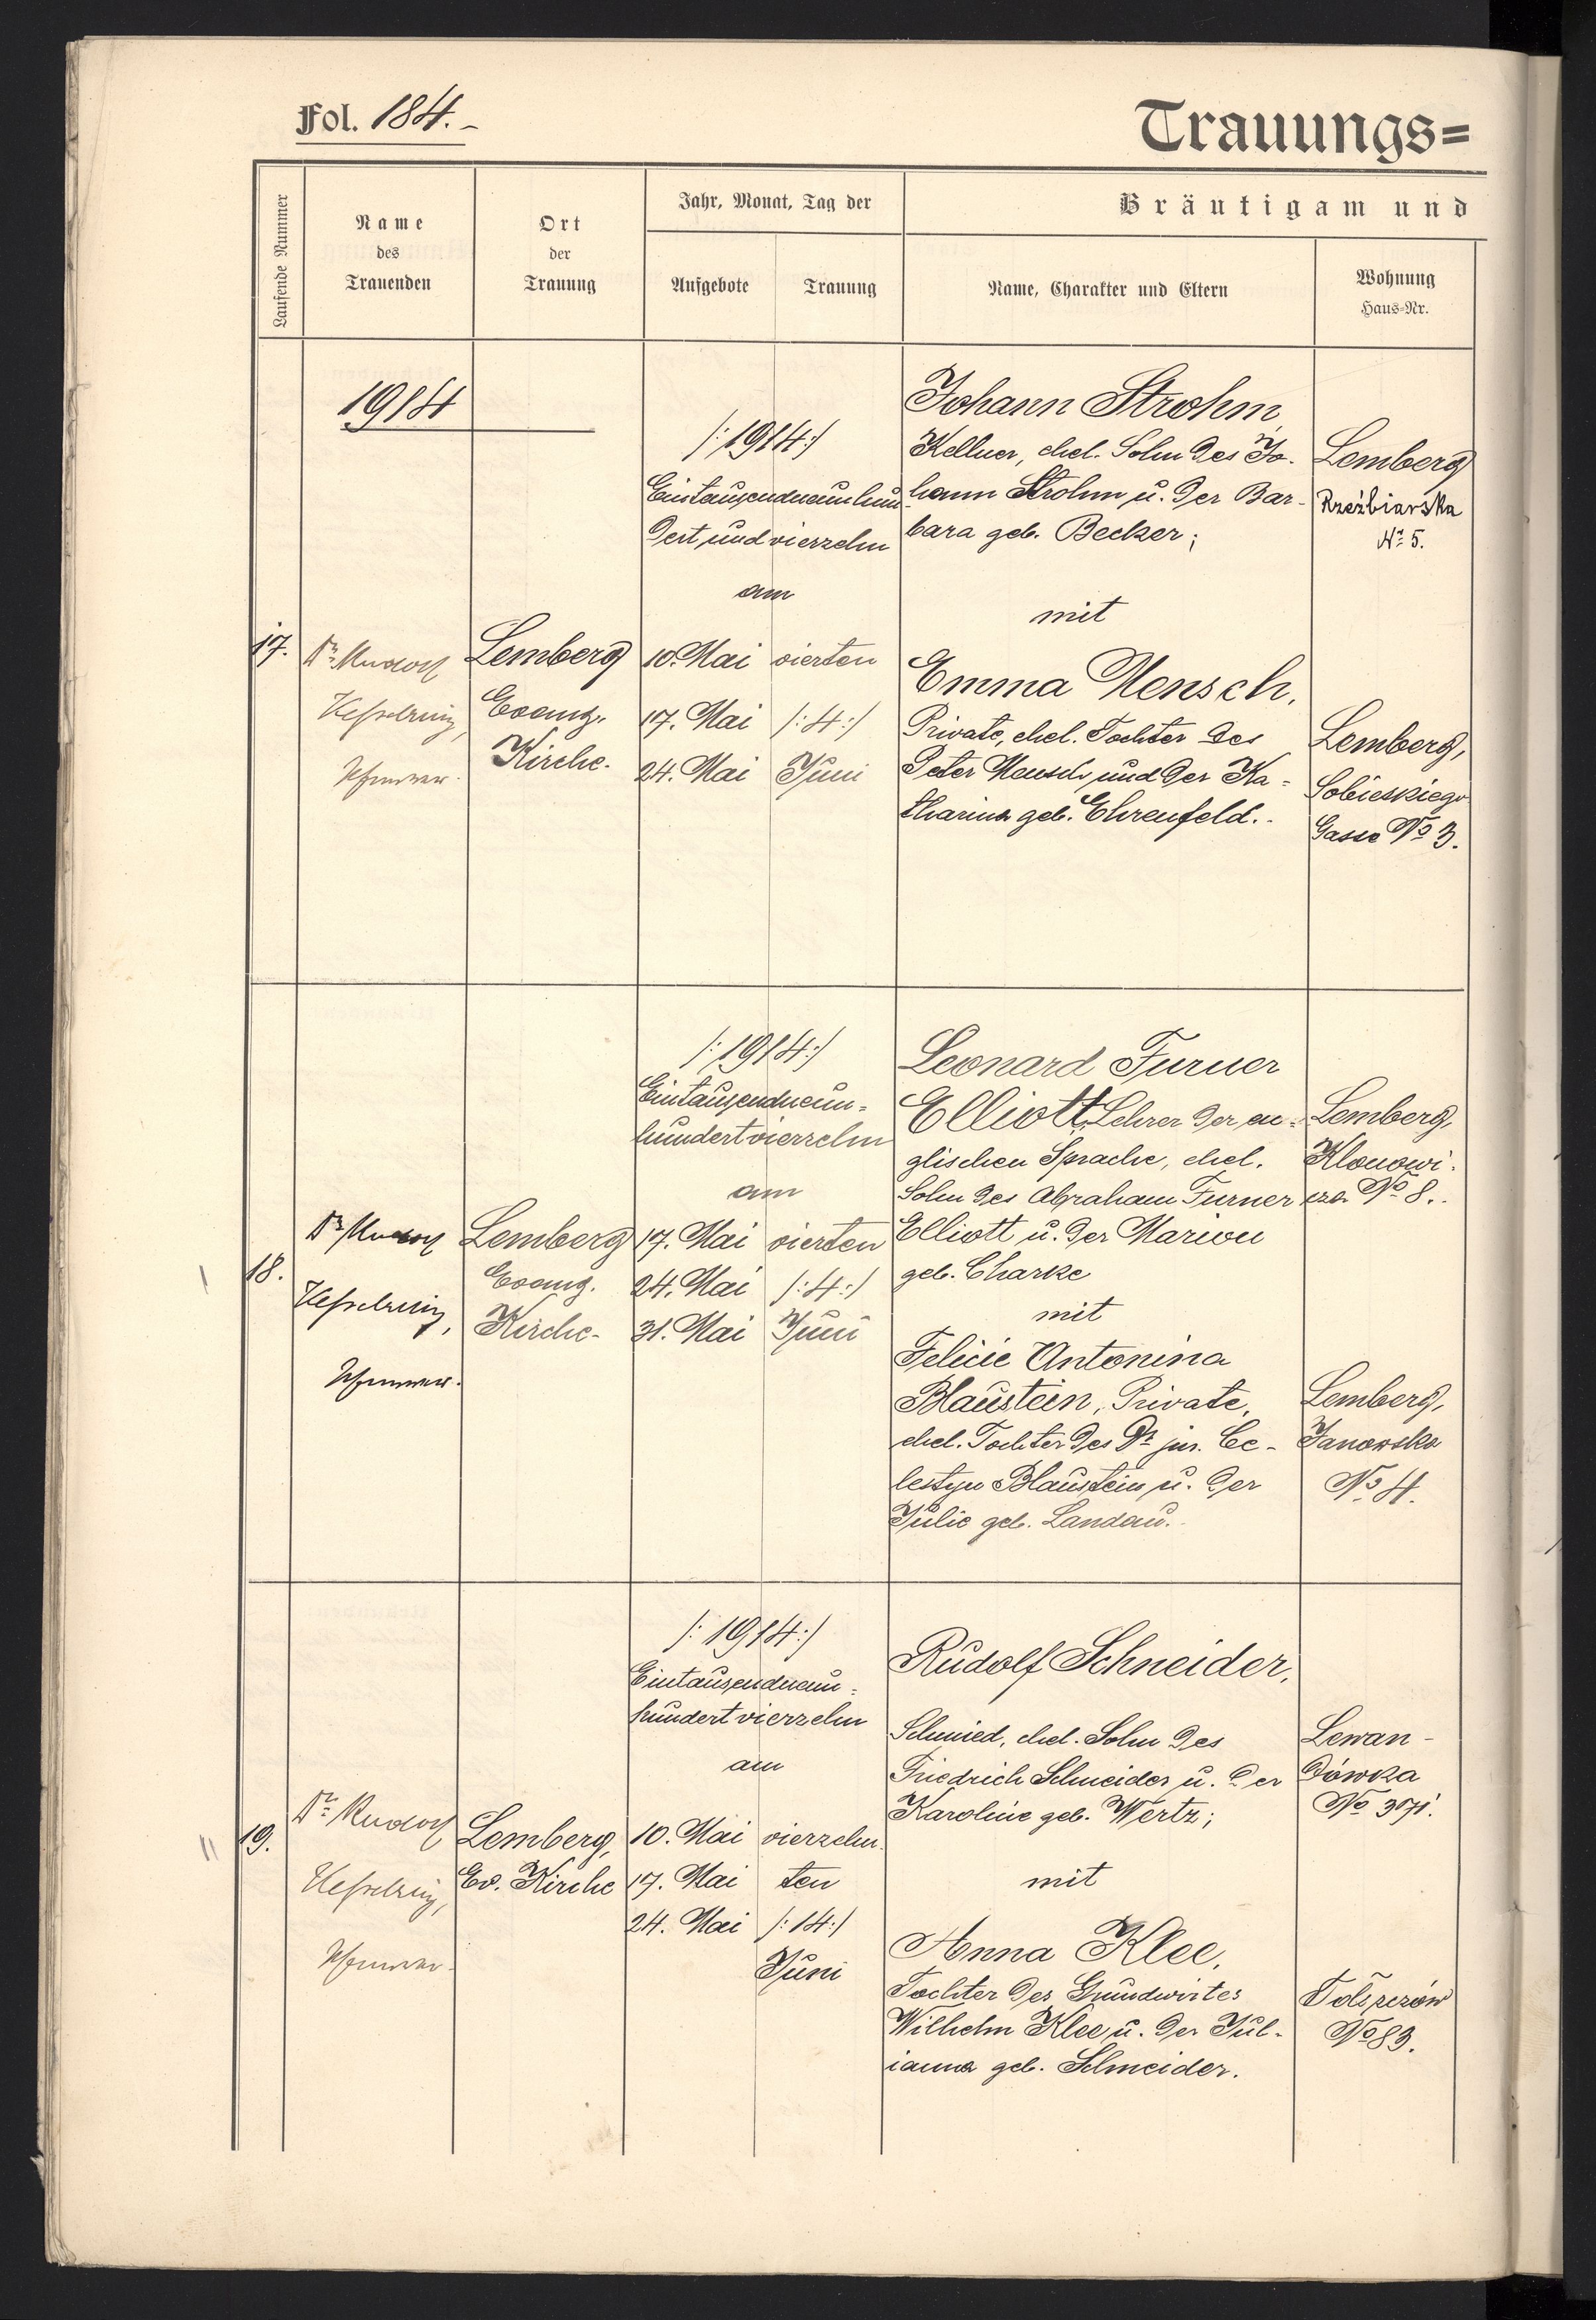 Fol. 184.-
Trauungs=
Laufende Nummer
Name
des
Trauenden
Ort
der
Trauung
Jahr, Monat, Tag der
Aufgebote
Trauung
Bräutigam und
Name, Charakter und Eltern
Wohnung
Haus=Nr.
1914
17.
Dr. Rudolf
Kesselring,
Lemberg
Evang.
Kirche.
/:1914:/
Eintausendneunhun
dert und vierzehn
am
10. Mai
17. Mai
24. Mai
vierten
/:4:/
Juni
Johann Strohm,
Kellner, ehel. Sohn des Jo-
hann Strohm u. der Bar-
bara geb. Becker;
mit
Emma Mensch,
Private, ehel. Tochter des
Peter Mensch und der Ka=
tharina geb. Ehrenfeld.-
Lemberg
Rzeźbiarska
No 5.
Lemberg,
Sobieskiego
Gasse No 3.
18.
Dr. Rudolf
Kesselring,
Lemberg
Evang.
Kirche-
/:1914:/
Eintausendneun=
hundertvierzehn
am
17. Mai
24. Mai
31. Mai
vierten
/:4:/
Juni
Leonard Turner
Elliott, Lehrer der en=
glischen Sprache, ehel.
Sohn des Abraham Turner
Elliott u. der Marion
geb. Charke
mit
Felicie Antonina
Blaustein, Private,
ehel. Tochter des Dr. jur. Ce-
lestyn Blaustein u. der
Julie geb. Landau.-
Lemberg,
Klonowi-
cza No 8.-
Lemberg,
Janowska
No 4.
19.
Dr. Rudolf
Kesselring,
Lemberg,
Ev. Kirche
/:1914:/
Eintausendneun=
hundert vierzehn
am
10. Mai
17. Mai
24. Mai
vierzehn
ten
/:14:/
Juni
Rudolf Schneider,
Schmied, ehel. Sohn des
Friedrich Schneider u. der
Karoline geb. Wertz;
mit
Anna Klee,
Tochter des Grundwirtes
Wilhelm Klee u. der Jul-
ianna geb. Schneider.
Lewan-
dówka
No
No 83.